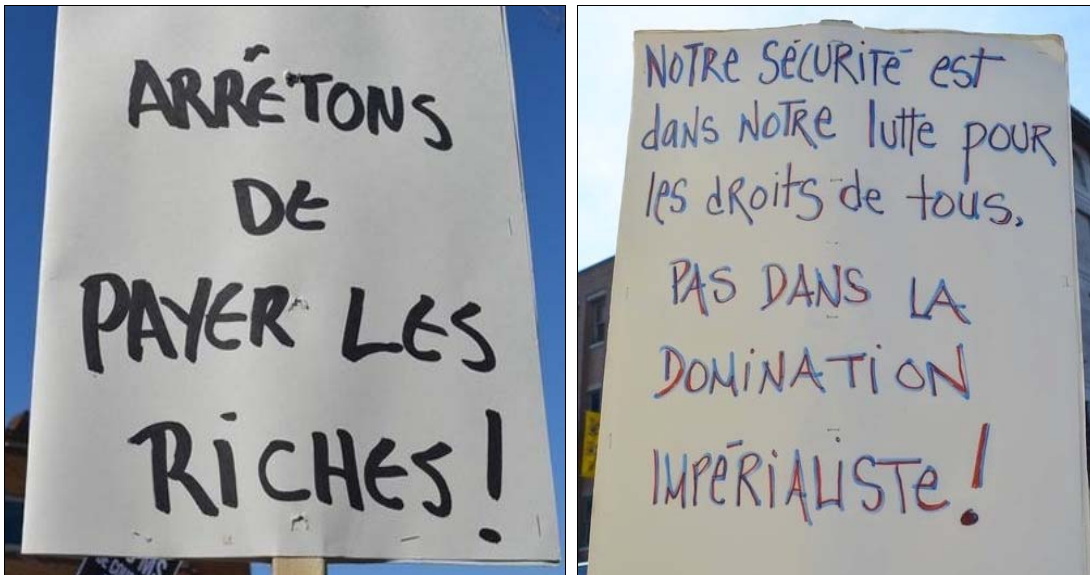 ARRÊTONS
DE
PAYER LES
RICHES!
NOTRE SÉCURITÉ est
dans NOTRE lutte pour
les dRoits de tous,
PAS DANS LA
DOMINATION
IMPÉRIALISTE!